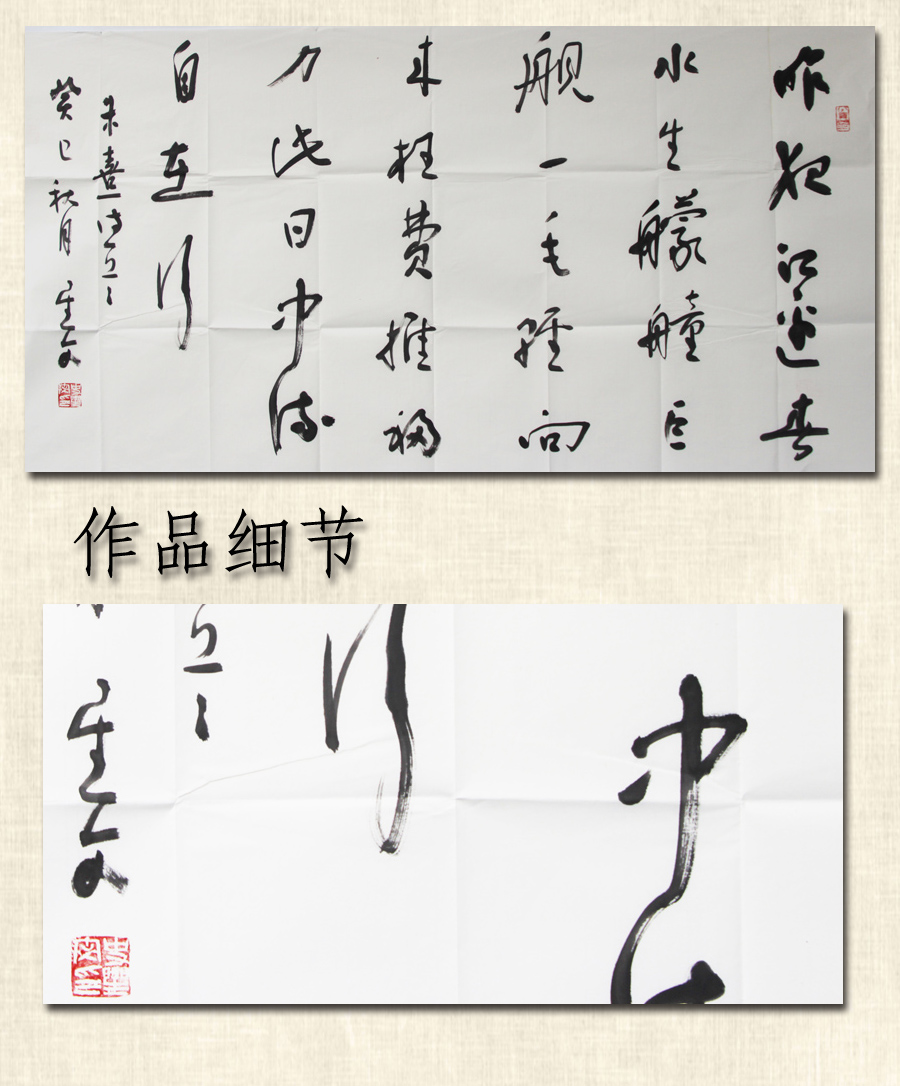 昨夜江邊春
水生艨艟巨
舰一毛輕向
来枉費推移
力此日中流
自在行
朱熹诗
癸巳秋月 星文
作品细节
中
行
星文